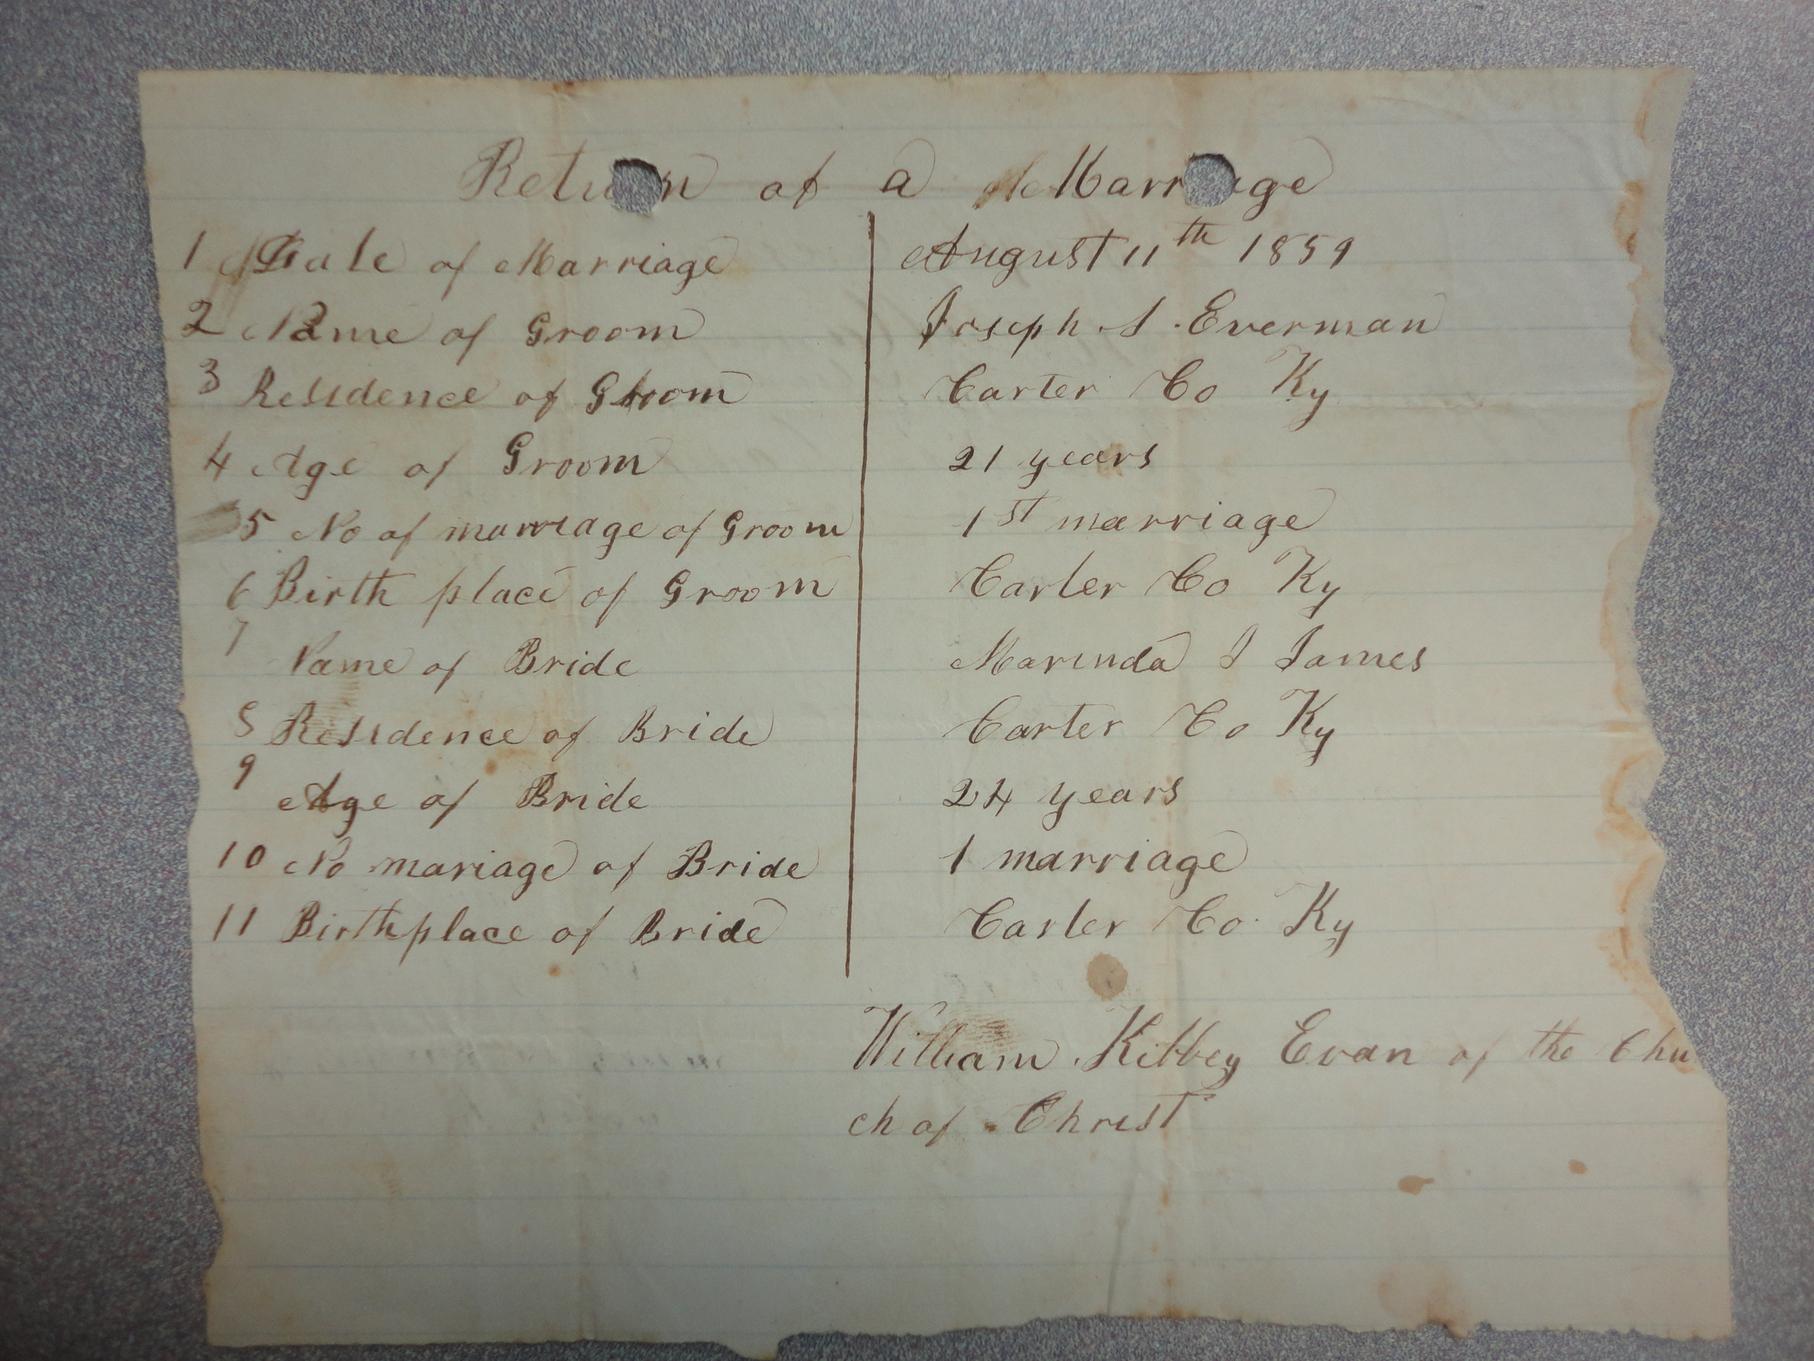 Return of a Marriage
1 Date of Marriage August 11th 1859
2 Name of Groom Joseph S. Everman
3 Residence of Groom Carter Co Ky
4 Age of Groom 21 years
5 No of marriage of Groom 1st marriage
6 Birth place of Groom Carter Co Ky
7 Name of Bride Marinda J James
8 Residence of Bride Carter Co Ky
9 Age of Bride 24 years
10 No mariage of Bride 1 marriage
11 Birthplace of Bride Carter Co. Ky
William Kibbey Evan of the Chu
ch of Christ